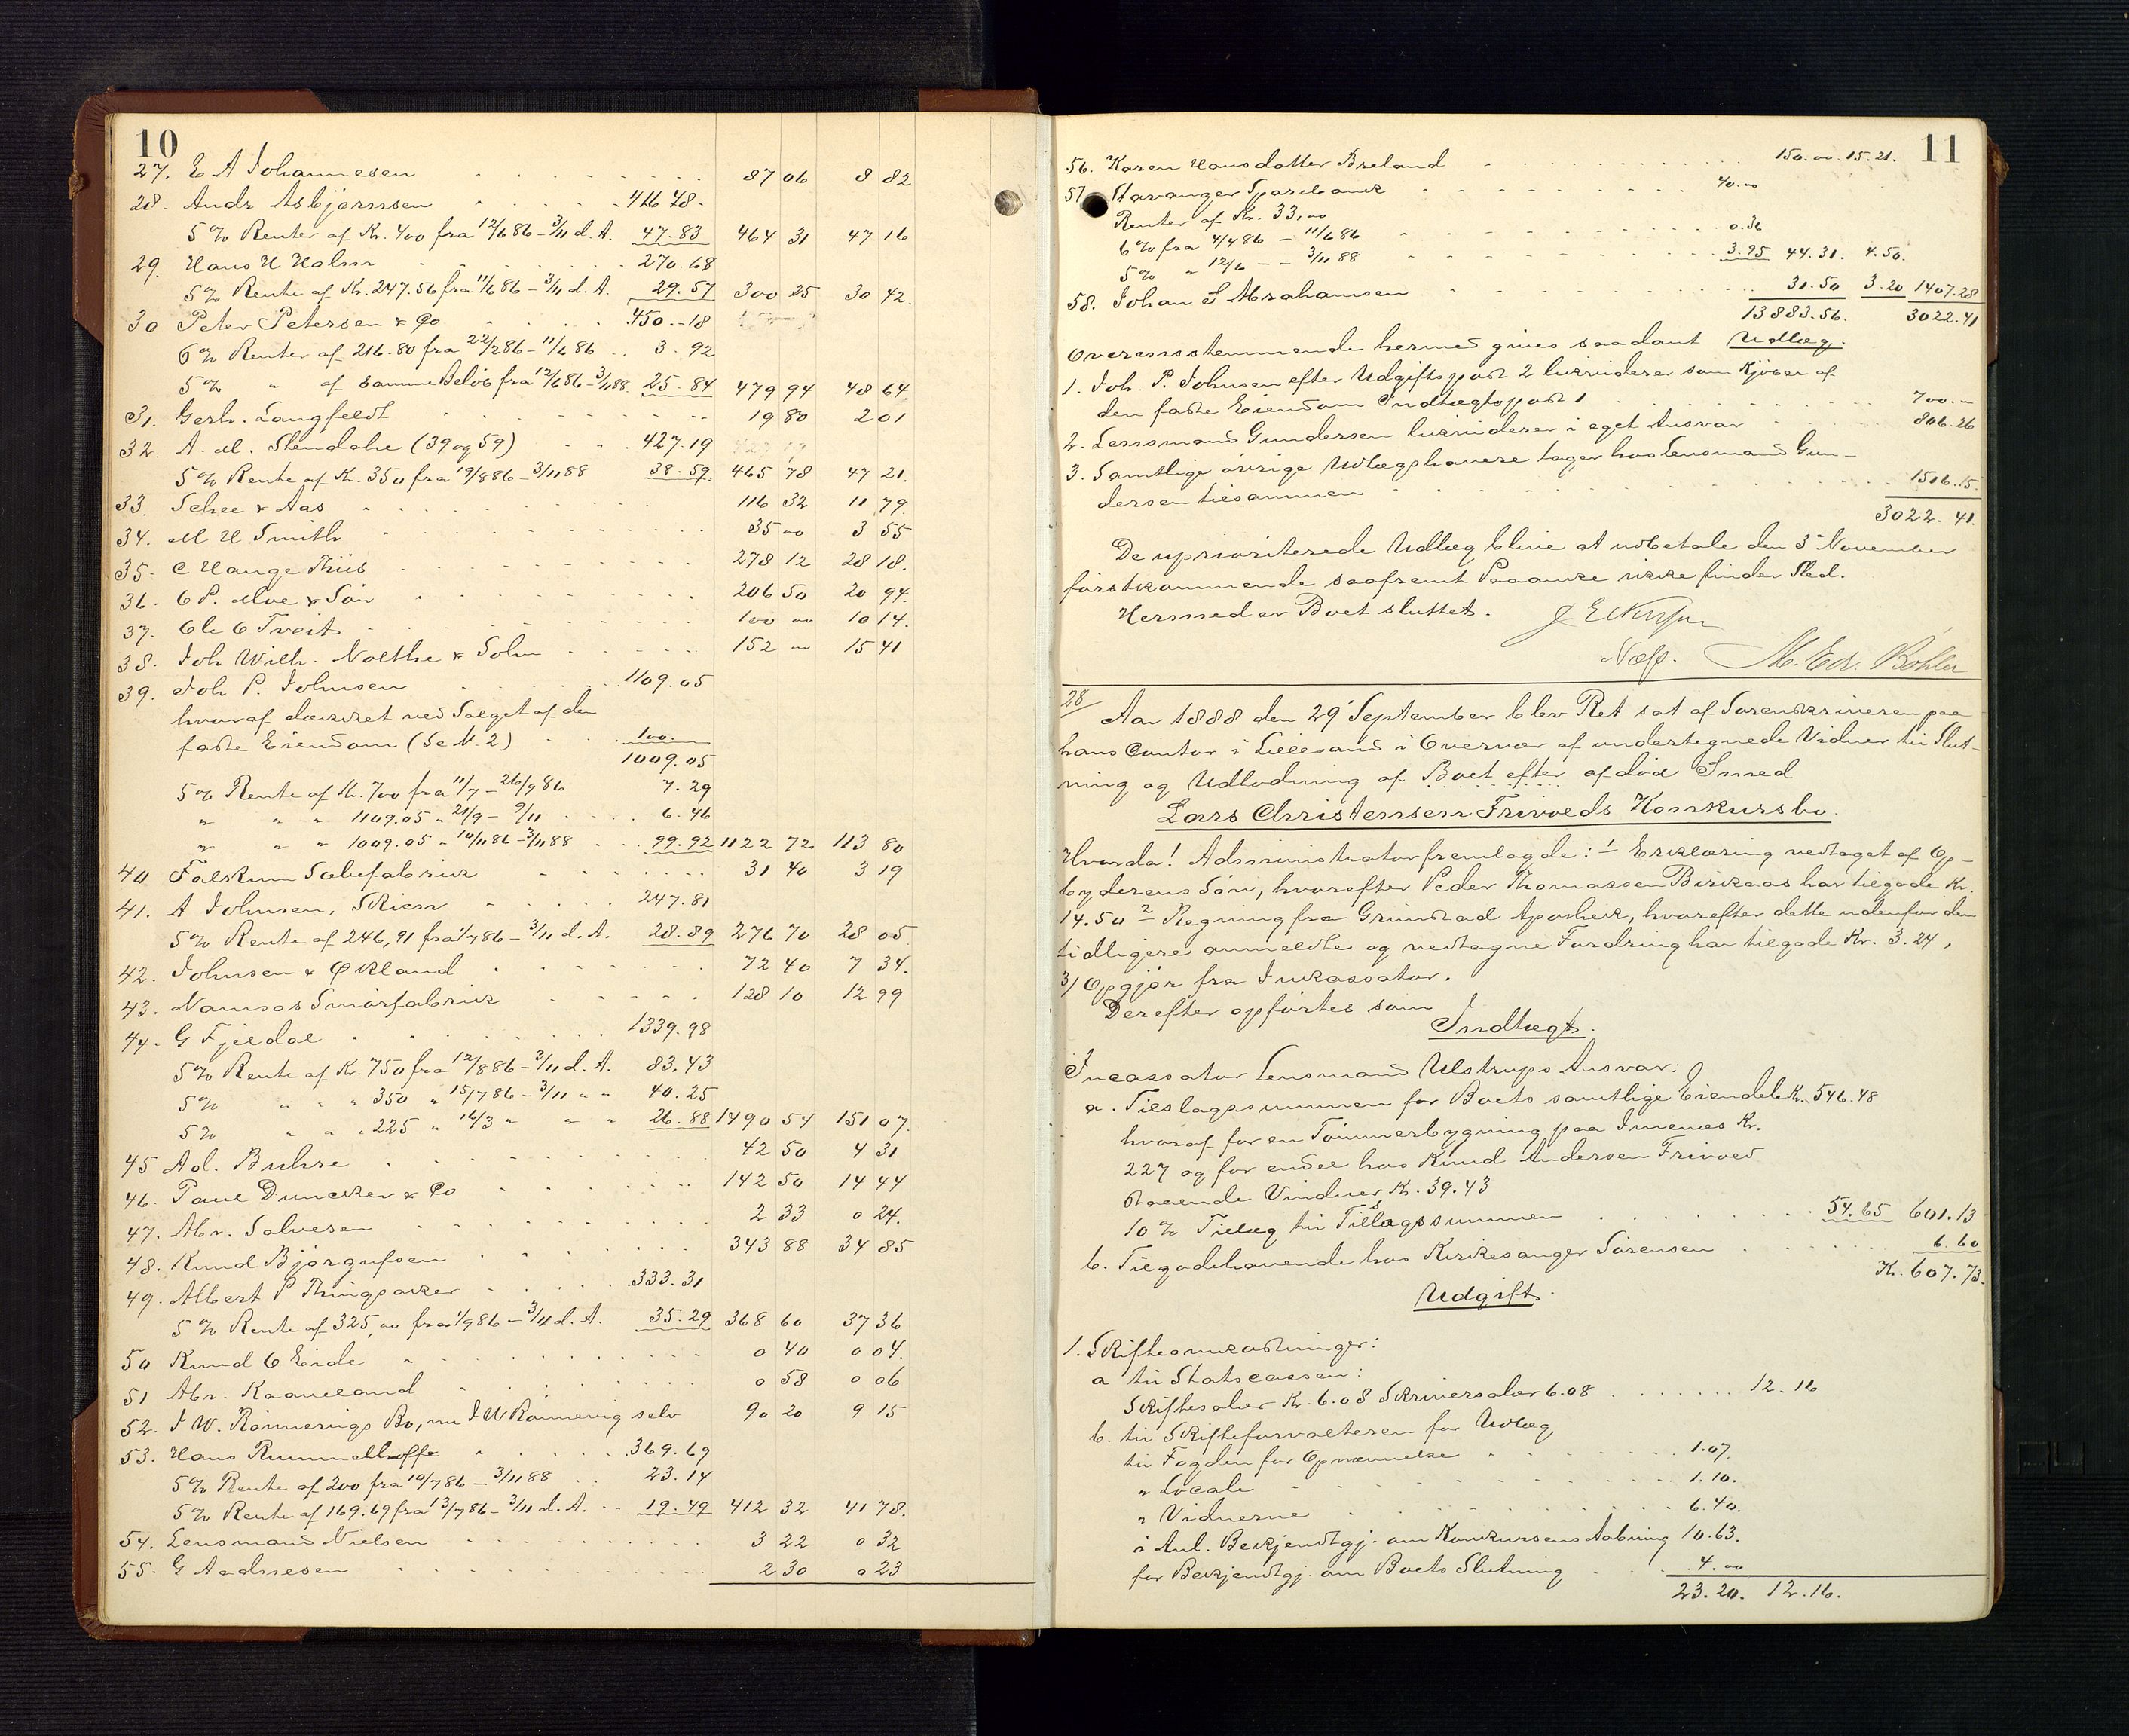 10
27. E A Johannesen 87 06 8 82
28. Andr Asbjörnsen 416 48.
5 % Renter af Kr. 400 fra 12/6 86 - 3/11 d. A. 47.83 464 31 47 16
29. Hans H Holm 270.68
5 % Rente af Kr. 247.56 fra 11/6 86 - 3/11 d. A. 29.57 300 25 30 42.
30 Peter Petersen & Co 450.-18
6 % Renter af 216.80 fra 22/2 86 - 11/6 86 3.92
5 % " af samme Beløb fra 12/6 86 - 3/11 88. 25.84 479 94 48 64.
31. Gerh. Langfeldt 19 80 2 01
32. A. M. Stendahl (39 og 59) 427.19
5 % Rente af Kr. 350 fra 19/8 86 - 3/11 88 38.59. 465 78 47 21.
33. Schee & Aas 116 32 11 79.
34. M H Smith 35 00 3 55
35. C Hauge Thiis 278 12 28 18.
36. O P. Moe & Sön 206 50 20 94.
37. Ole O Tveit 100 00 10 14.
38. Joh Wilh. Nolthe & Sohn 152 00 15 41
39. Joh P. Johnsen 1109.05
hvoraf dækket ved Salget af den
faste Eiendom (Se N. 2) 100.
1009.05
5 % Rente af Kr. 700 fra 11/7 - 26/9 86 7.29
" " " 1109.05 " 21/9 - 9/11 6.46
" " " 1009.05 " 10/11 86 - 3/11 88 99.92 1122 72 113 80
40 Falkum Sæbefabrik 31 40 3 19
41. A Johnsen, Skien 247.81
5 % Rente af 246,91 fra 1/7 86 - 3/11 d. A. 28.89 276 70 28 05
42. Johnsen & Økland 72 40 7 34.
43. Namsos Smörfabrik 128 10 12 99
44. G Fjeldal 1339.98
5 % Rente af Kr. 750 fra 12/8 86 - 3/11 d. A. 83.43
5 % " " " 350 " 15/7 86 - 3/11 " " 40.25
5 % " " " 225 " 16/3 " " " 26.88 1490 54 151 07.
45 Ad. Buhre 42 50 4 31
46. Paul Duncker & Co 142 50 14 44
47. Abr. Salvesen 2 33 0 24.
48. Knud Bjorgulfsen 343 88 34 85
49. Albert P Thingsaker 333.31
5 % Rente af 325,00 fra 1/9 86 - 3/11 d. A. 35.29 368 60 37 36
50 Knud O Eide 0 40 0 04.
51 Abr. Kaaveland 0 58 0 06
52. J W. Rönnevigs Bo, nu J W Rönnevig selv 90 20 9 15
53. Hans Rummelhoff 369.69
5 % Rente af 200 fra 10/7 86 - 3/11 88 23.14
5 % Rente af 169.69 fra 13/7 86 - 3/11 d. A. 19.49 412 32 41 78.
54. Lensmand Nielsen 3 22 0 32
55. G Andresen 2 30 0 23
11
56. Karen Hansdatter Breland 150.00. 15.21.
57 Stavanger Sparebank 40.00
Renter af Kr. 33,00
6 % fra 4/4 86 - 11/6 86 0.36
5 % " 12/6 - - 3/11 88 3.95 44.31. 4.50.
58. Johan Abrahamsen 31.50 3.20 1407.28
13883.56. 3022.41
Overensstemmende hermed gives saadant Udlæg.
1. Joh. P. Johnsen efter Udgiftspost 2 likviderer som Kjöber af
den faste Eiendom Indtægtspost 1 700.-
2. Lensmand Gundersen likviderer i eget Ansvar 806.26
3. Samtlige övrige Udlægshavere tager hos Lensmand Gun-
dersen tilsammen 1516.15.
3022.41.
De uprioriterede Udlæg blive at udbetale den 3die November
förstkommende saafremt Paaanke ikke finder Sted.
Hermed er Boet sluttet.
Næss. M. Edv. Böhler
28/ Aar 1888 den 29' September blev Ret sat af Sorenskriveren paa
hans Contor i Lillesand i Overvær af undertegnede Vidner til Slut-
ning og Udlodning af Boet efter afdöd Smed
Lars Christensen Trivolds Konkursbo.
Hvorda! Administrator fremlagde: 1 Erklæring vedtaget af Op-
byderens Sön, hvorefter Peder Thomassen Birkaas har tilgode Kr.
14.50 2 Regning fra Grimstad Apothek, hvorefter dette udenfor den
tidligere anmeldte og vedtagne Fordring har tilgode Kr. 3.24,
3/ Opgjör fra Inkassator.
Derefter opförtes som
Indtægt.
Incassator Lensmand Ulstrups Ansvar:
a. Tilslagssummen for Boets samtlige Eiendele Kr. 546.48
hvoraf for en Tömmerbygning paa Imenæs Kr.
227 og for endel hos Knud Andersen Trivold
staaende Vinduer Kr. 39.43
10 % Tillæg til Tilslagssummen 54.65 601.13
b. Tilgodehavende hos Kirkesanger Sörensen 6.60
Kr. 607.73.
Udgift.
1. Skifteomkostninger:
a til Statscassen:
Skiftesalær Kr. 6.08 Skriversalær 6.08 12.16
b. til Skifteforvalteren for Udlæg
til Fogden for Opnævnelse 1.07.
" Locale 1.10.
" Vidnerne 6.40.
i Anl. Bekjendtgj. om Konkursens Aabning 10.63.
for Bekjendtgj. om Boets Slutning 4.00
23.20. 12.16.